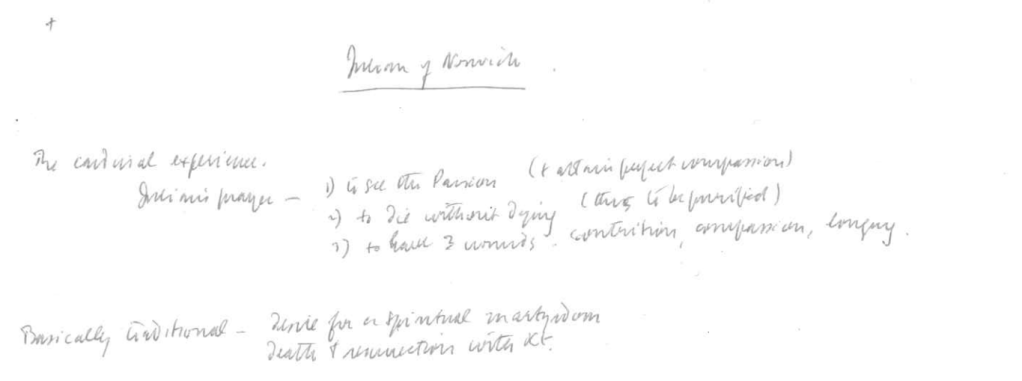 +
Julian of Norwich.
The cardinal experience.
Julian's prayer — 1) to see the Passion (& attain perfect compassion)
2) to die without dying (thus to be purified)
3) to have 3 wounds. contrition, compassion, longing.
Basically traditional — desire for a spiritual martyrdom
death & resurrection with Xt.